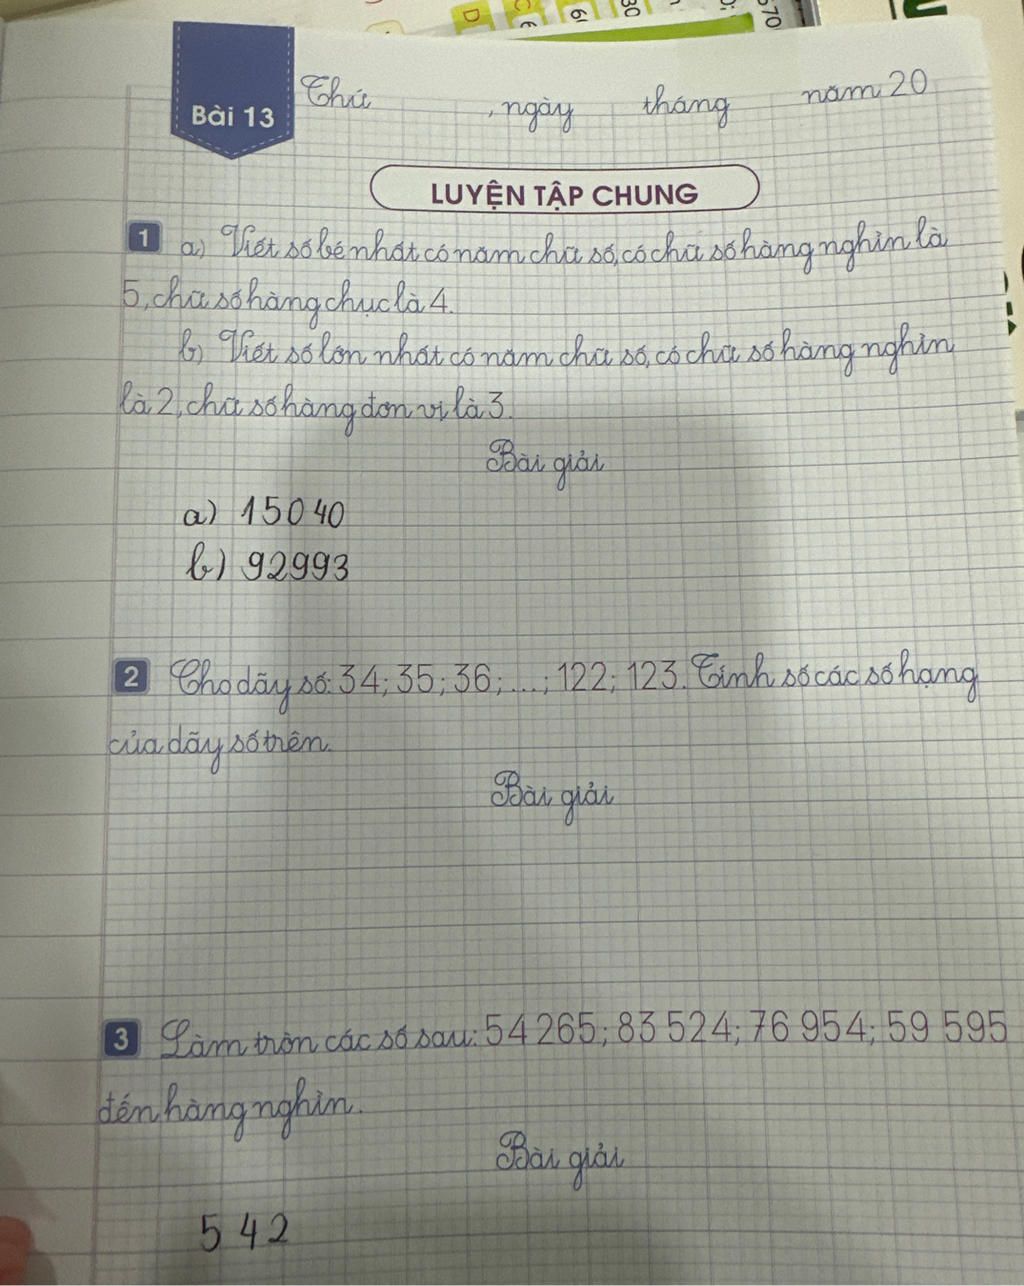 Bài 13
Thứ , ngày tháng năm 20
LUYỆN TẬP CHUNG
1 a) Viết số bé nhất có năm chữ số, có chữ số hàng nghìn là
5, chữ số hàng chục là 4.
b) Viết số lớn nhất có năm chữ số, có chữ số hàng nghìn
là 2, chữ số hàng đơn vị là 3.
Bài giải
a) 15040
b) 92993
2 Cho dãy số: 34; 35; 36; ...; 122; 123. Tính số các số hạng
của dãy số trên.
Bài giải
3 Làm tròn các số sau: 54 265; 83 524; 76 954; 59 595
đến hàng nghìn.
Bài giải
5 4 2